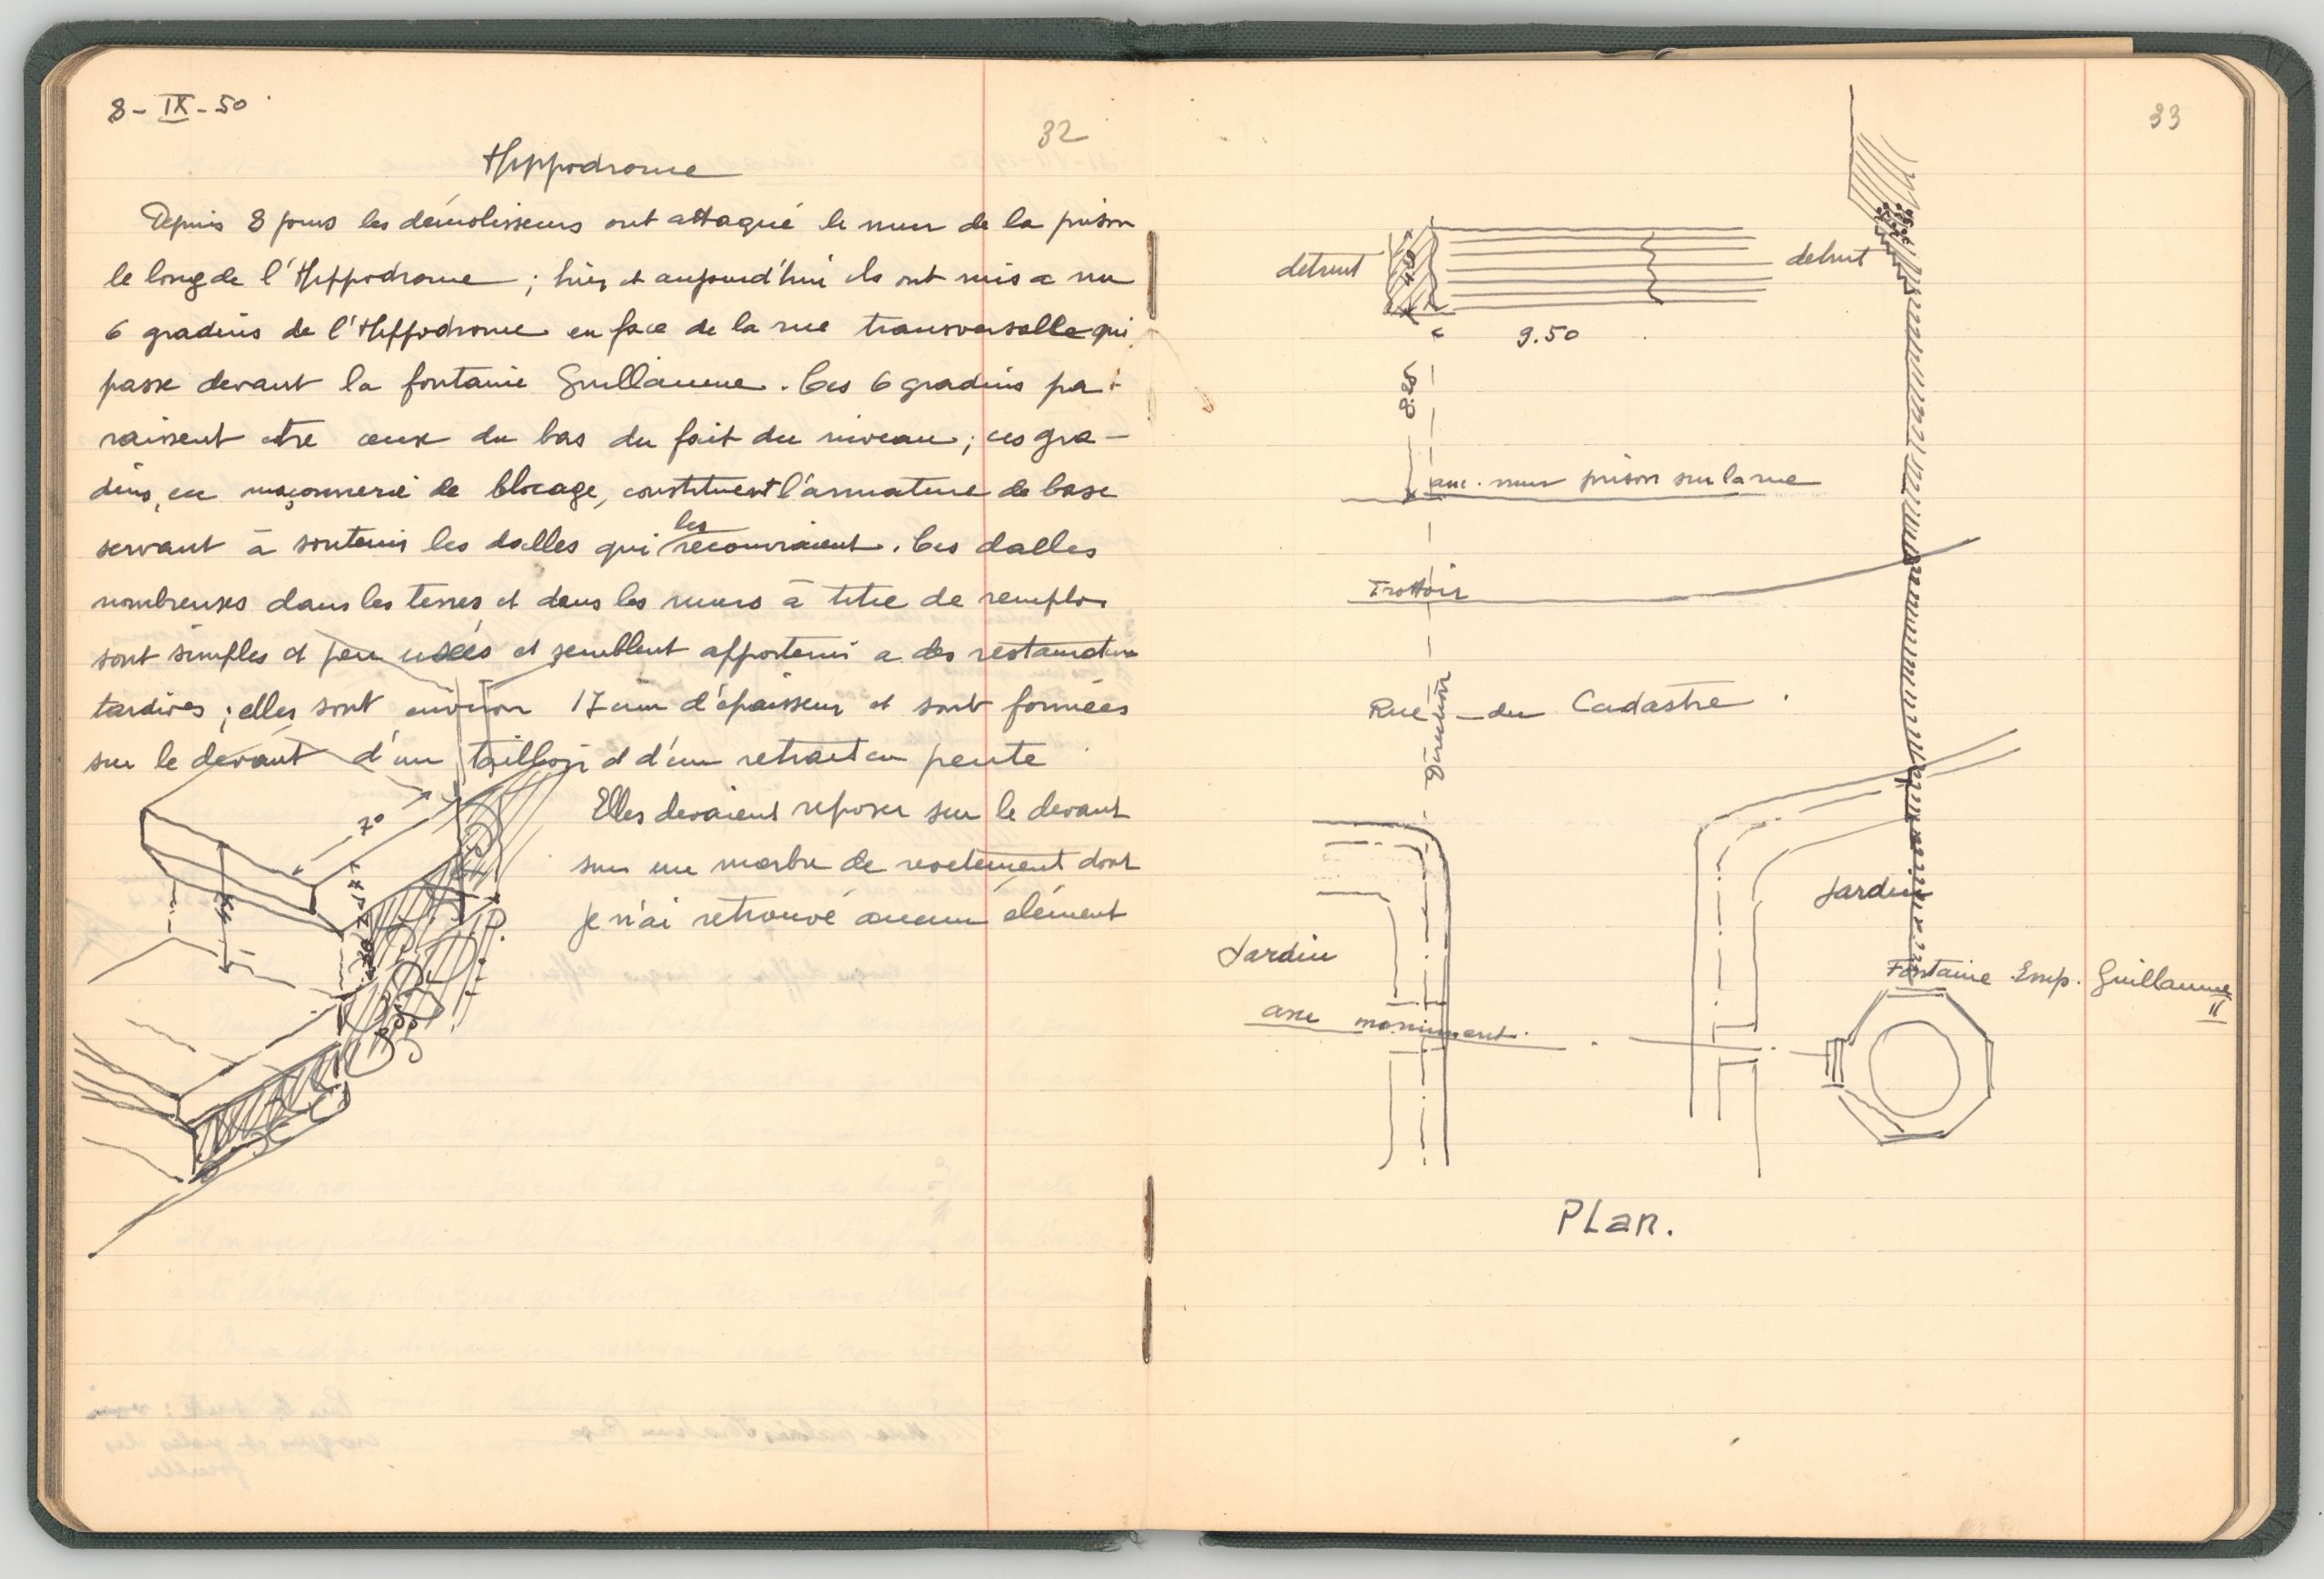 8-IX-50
32
Hippodrome
Depuis 8 jours les démolisseurs ont attaqué le mur de la prison
le long de l'Hippodrome ; hier et aujourd'hui ils ont mis a nu
6 gradins de l'Hippodrome en face de la rue transversalle qui
passe devant la fontaine Guillaume. Ces 6 gradins pa-
raissent etre ceux du bas du fait du niveau ; ces gra-
dins, en maçonnerie de blocage, constituent l'armature de base
servant à soutenir les dalles qui les recouvraient. Ces dalles
nombreuses dans les terres et dans les murs à titre de remploi
sont simples et peu usées et semblent appartenir a des restauration
tardives ; elles sont environ 17 cm d'épaisseur et sont formées
sur le devant d'un tailloir et d'un retrait en pente
Elles devaient reposer sur le devant
sur un marbre de revetement dont
je n'ai retrouvé aucun élément
70
33
detruit
detruit
9.50
8.85
anc. mur prison sur la rue
Trottoir
Rue du Cadastre.
Direction
Jardin
Jardin
Fontaine Emp. Guillaume
II
axe monument.
PLan.